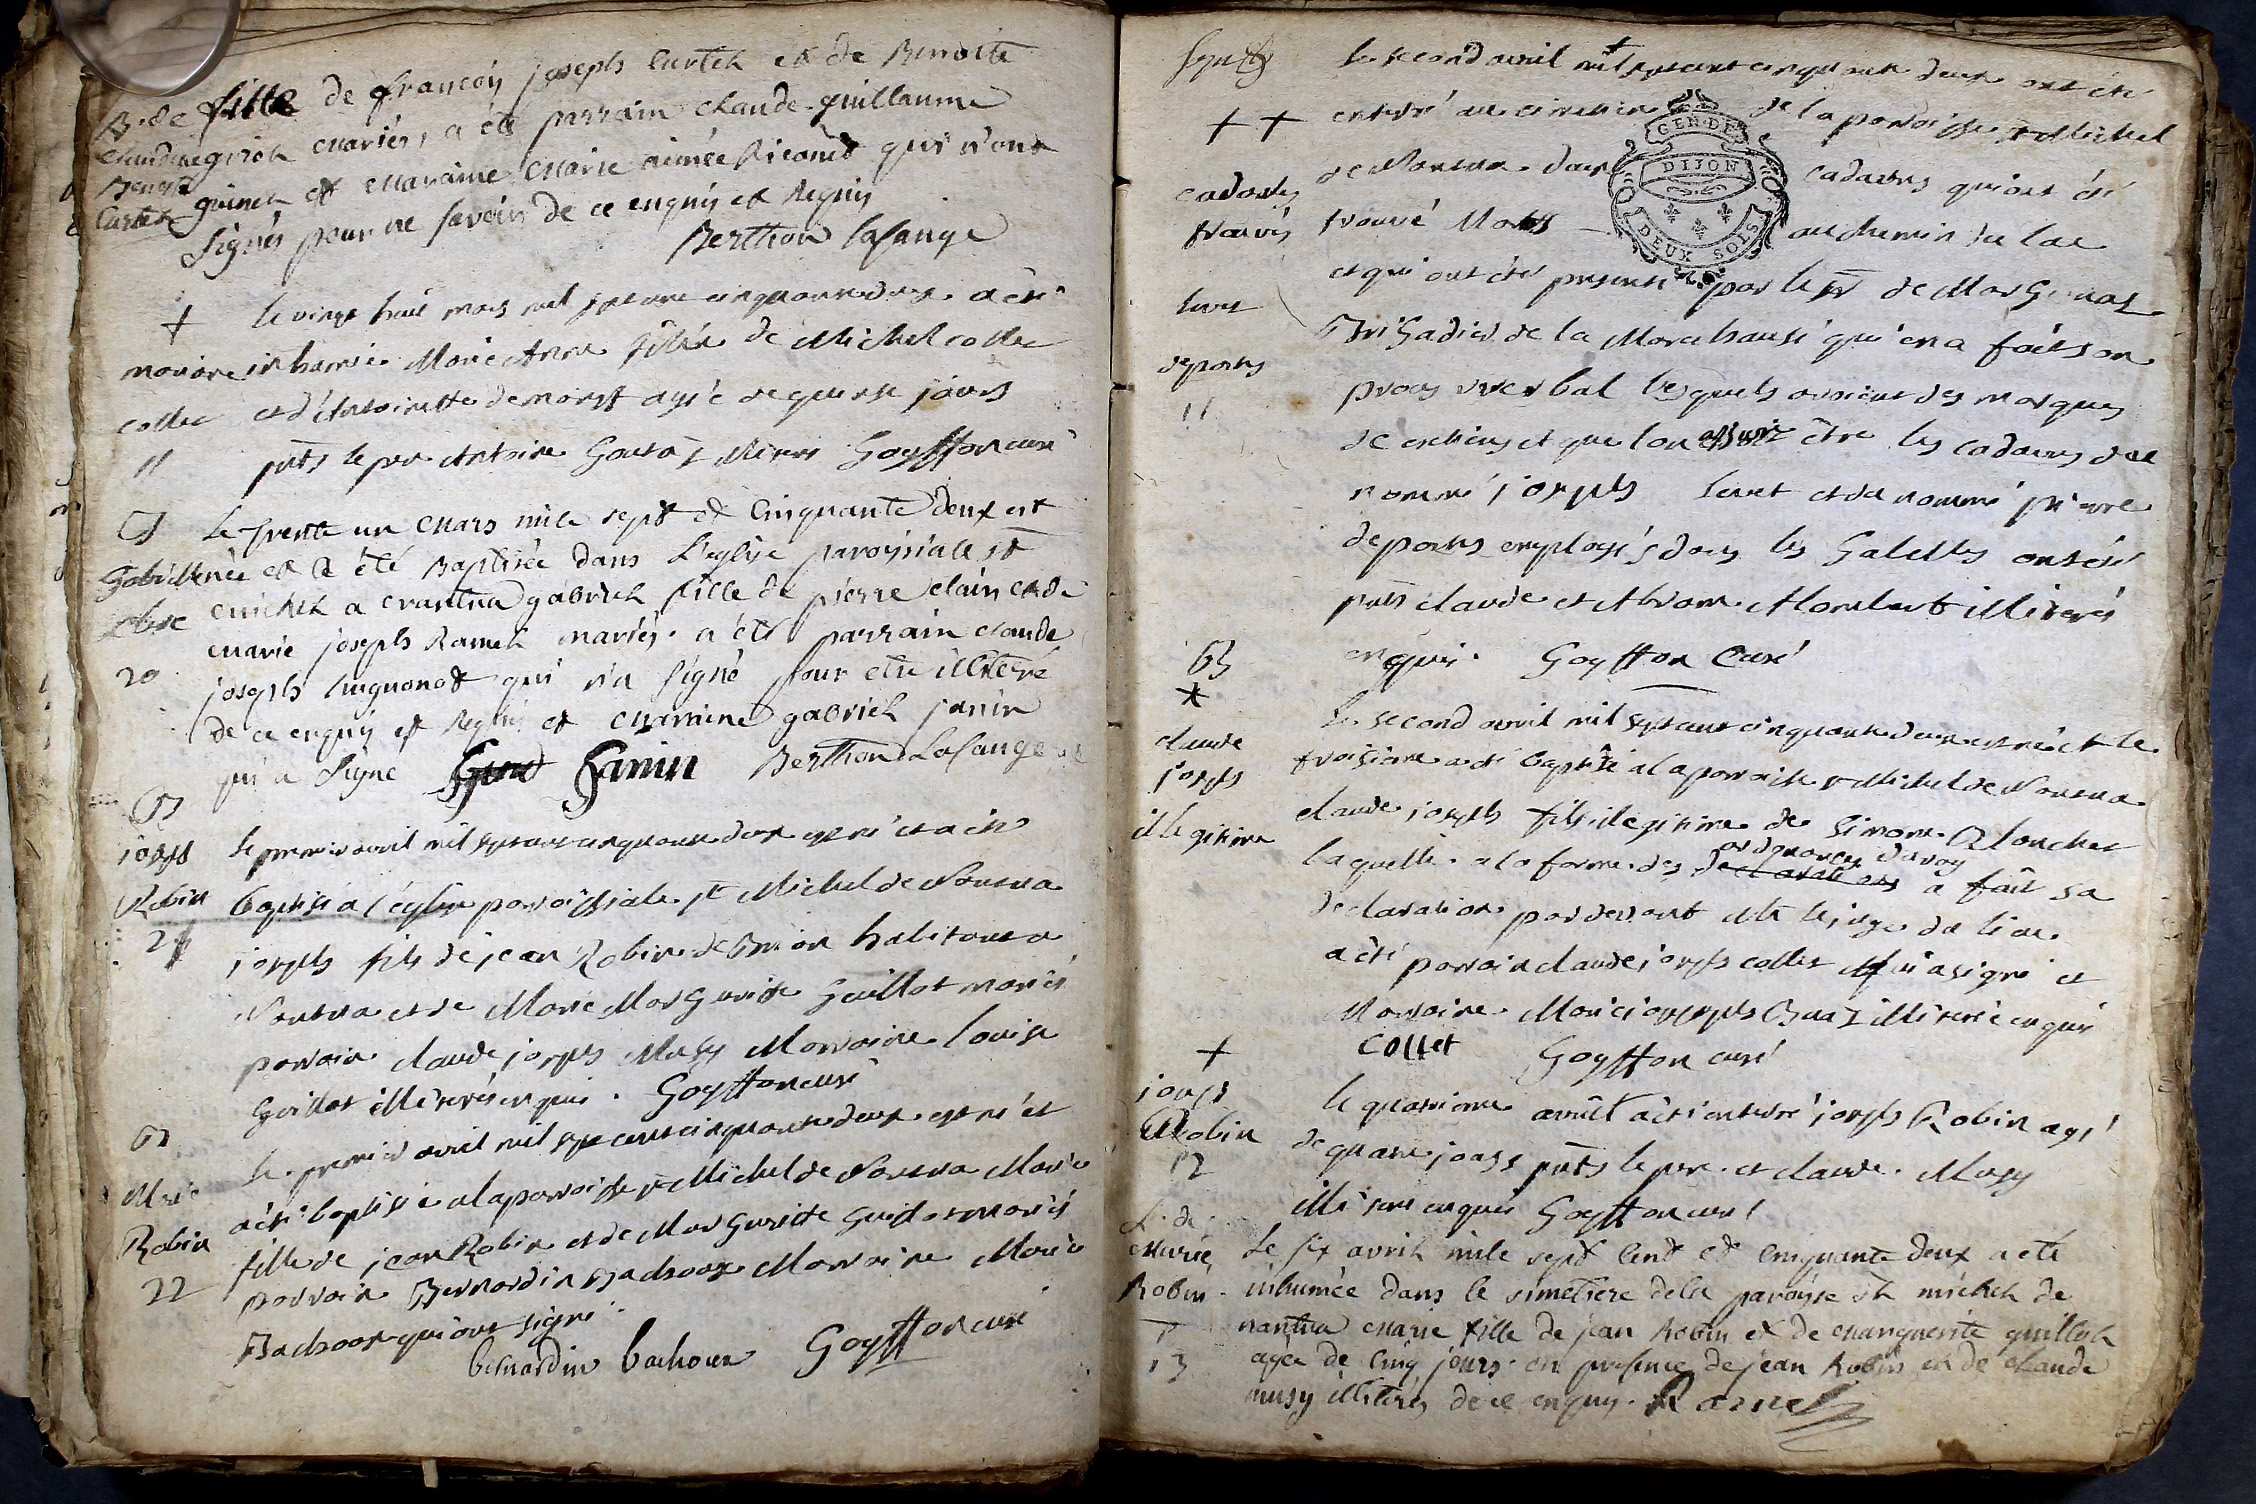 B. de fille de françois joseph Curtet et de Benoite
Claudine girod mariés, a été parrain claude guillaume
Benoite guinet et maraine marie aimée Ricand qui n'ont
Curtet signés pour ne savoir de ce enquis et Requis
Berthon Lasange
+ le vingt huit mars mil sept cent cinquante deux a été
inhumée Marie Anne fille de Michel collet
collet et d'Antoinette agée de quinze jours
11 pnts le pere Antoine illiteres Goyffon curé
B Le trente un mars mile sept ct Cinquante deux est
Gabriele née et a été Baptisée dans L'eglise paroissiale st
michel a nantua gabriele fille de pierre clain et de
marie joseph Ramel mariés. a été parrain claude
20 joseph huguonet qui n'a signé pour etre illiteré
de ce enquis et Requis et marraine gabriele janin
qui a signé Janin Berthon Lasange
B
joseph le premier avril mil sept cent cinquante deux est né et a été
Robin baptisé a l'église paroissiale st Michel de Nantua
21 joseph fils de jean Robin de Brion habitant a
Nantua et de Marie Marguerite Guillot mariés
parrain claude joseph Musy Marraine louise
Guillot illiterés enquis. Goyffon curé
B le premier avril mil sept cent cinquante deux est né et
Marie a été baptisée a la paroisse st Michel de Nantua Marie
Robin fille de jean Robin et de Marguerite Guillot mariés
22 parrain Bernardin Bachoux Marraine Marie
Bachoux qui ont signé
bernardin bachoux Goyffon curé
Sepult. le second avril mil sept cent cinquante deux ont été
+ + enterré au cimetiere de la paroisse st Michel
de Nantua deux cadavres qui ont été
cadavres
trouvés trouvé Morts — au chemin du lac
GEN. DE DIJON DEUX SOLS
levet et qui ont été presenté par le sr de
Brigadier de la Marechaussé qui en a fait son
deportes proces verbal lesquels avoient des marques
11 de chretiens et que l'on assure être les cadavres du
nommé joseph levet et du nommé pierre
deportes employés dans les Gabelles ont été
pnts claude et Abram Humbert illiterés
enquis. Goyffon Curé
B
* le second avril mil sept cent cinquante deux est né et le
claude troisieme a été baptisé a la paroisse st Michel de Nantua
joseph claude joseph fils illegitime de Simone Blanchet
illegitime laquelle a la forme des declarations ordonances du roy a fait sa
declaration par devant Mr le juge du lieu
a été parrain claude joseph collet qui a signé et
Marraine Marie joseph illiterée enquis
Collet Goyffon curé
+
joseph le quatrieme avril a été enterré joseph Robin agé
Robin de quatre jours pnts le pere et claude Musy
12 illiteres enquis Goyffon curé
S. de
Marie Le six avril mile sept Cent et Cinquante deux a eté
Robin inhumée dans le simetiere de la paroise st michel de
+ nantua marie fille de jean Robin et de marguerite guillot
13 agée de Cinq jours. en presence de jean Robin et de claude
musy illiterés de ce enquis. Ramel